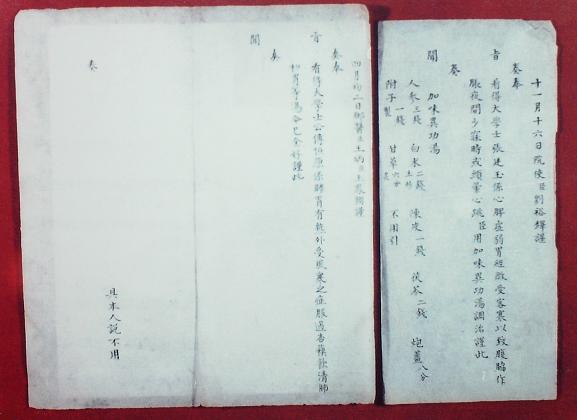 十一月十六日院使臣劉裕鐸謹
奏奉
旨看得大學士張廷玉係心脾虛弱胃經微受客寒以致腹脇作
脹夜間少寐時或頭暈心跳臣用加味異功湯調治謹此
奏
聞
加味異功湯
人參三錢 白术二錢土炒 陳皮一錢 茯苓二錢 炮薑八分
附子一錢製 甘草六分炙 不用引
四月初二日御醫臣王炳臣王謹
奏奉
旨看得大學士公傅恒原係肺胃有熱外受風寒之症服過杏蘇飲清肺
和胃等湯今已全好謹此
奏
聞
奏
具本人說不用